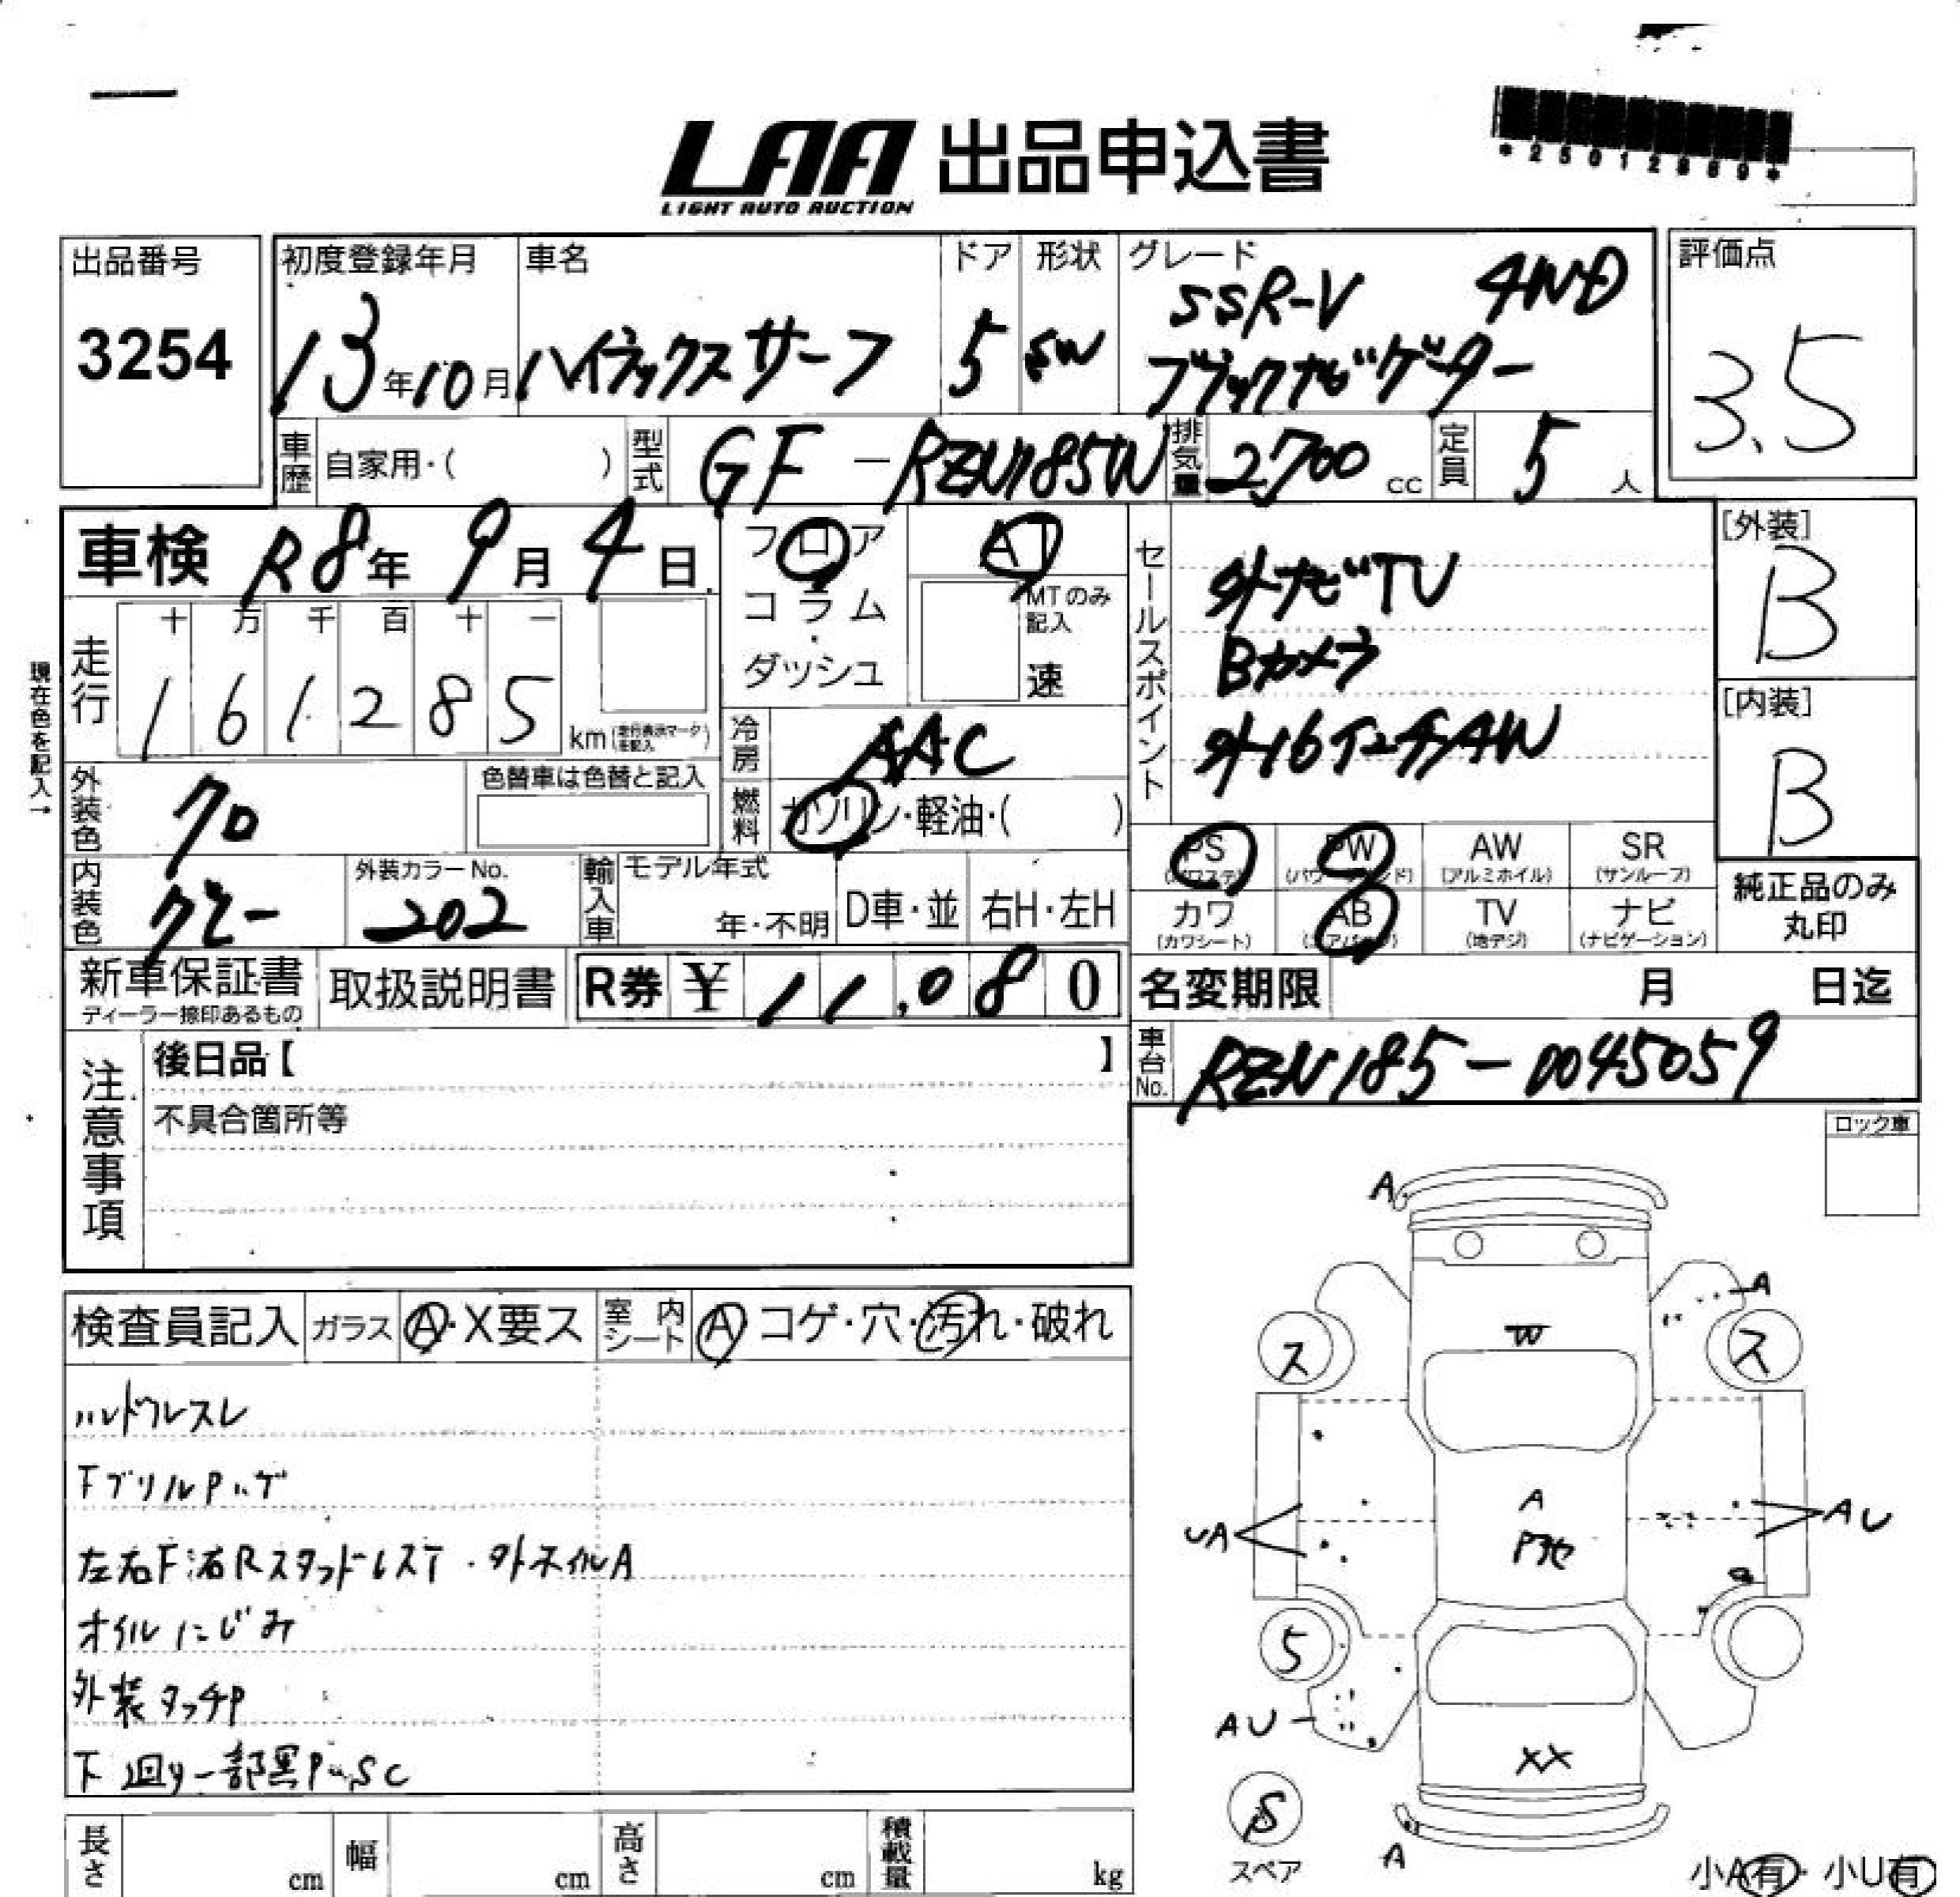 LAA 出品申込書
LIGHT AUTO AUCTION
*25012989*
出品番号
3254
初度登録年月
13年10月
車名
ハイラックスサーフ
ドア
5
形状
SW
グレード
SSR-V 4WD
ブラックナビゲーター
評価点
3.5
車歴 自家用・( )
型式 GF-RZN185W
排気量 2700 cc
定員 5 人
車検 R8年 9月 4日
フロア
コラム
・
ダッシュ
AT
MTのみ記入
速
セールスポイント
外ナビTV
Bカメラ
外16インチAW
[外装]
B
[内装]
B
現在色を記入→
走行
十 万 千 百 十 一
1 6 1 2 8 5
km(走行表示マークを記入)
冷房 AAC
燃料 ガソリン・軽油・( )
外装色 クロ
色替車は色替と記入
内装色 グレー
外装カラーNo.
202
輸入車
モデル年式
年・不明
D車・並
右H・左H
PS (パワステ)
PW (パワーウィンド)
AW (アルミホイル)
SR (サンルーフ)
カワ (カワシート)
AB (エアバッグ)
TV (地デジ)
ナビ (ナビゲーション)
純正品のみ
丸印
新車保証書
ディーラー捺印あるもの
取扱説明書
R券 ¥ 11,080
名変期限 月 日迄
車台No. RZN185-0045059
注意事項
後日品【 】
不具合箇所等
ロック車
検査員記入
ガラス A・X要ス
室内シート A コゲ・穴・汚れ・破れ
ハンドルスレ
FグリルPハゲ
左右F右Rスタッドレス・外ホイルA
オイルにじみ
外装タッチP
下廻り一部黒P・SC
A
A
W
ス
ス
A
UA
AU
5
AU
XX
S
スペア
A
小A有・小U有
長さ cm
幅 cm
高さ cm
積載量 kg